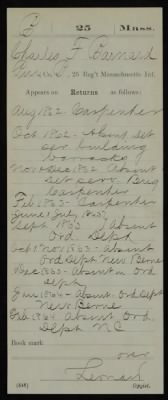 B 25 Mass.
Charles F Barnard
Co. , 25 Reg't Massachusetts Inf.
Appears on Returns as follows:
Aug 1862 Carpenter
Oct 1862 - Absent Det
ser building
barracks
Nov & Dec 1862 Absent
det serv. Brig
Carpenter
Feb 1863 - Carpenter
June & July, 1863
Sept 1863 Absent
Ord Dept
Oct & Nov 1863 - Absent
Ord Dept New Berne
Dec 1863 - Absent in Ord
dept
Jan 1864 - Absent, Ord Dept
New Berne
Feb 1864 Absent, Ord.
Dept NC
Book mark
over
Leonard
(546) Copyist.